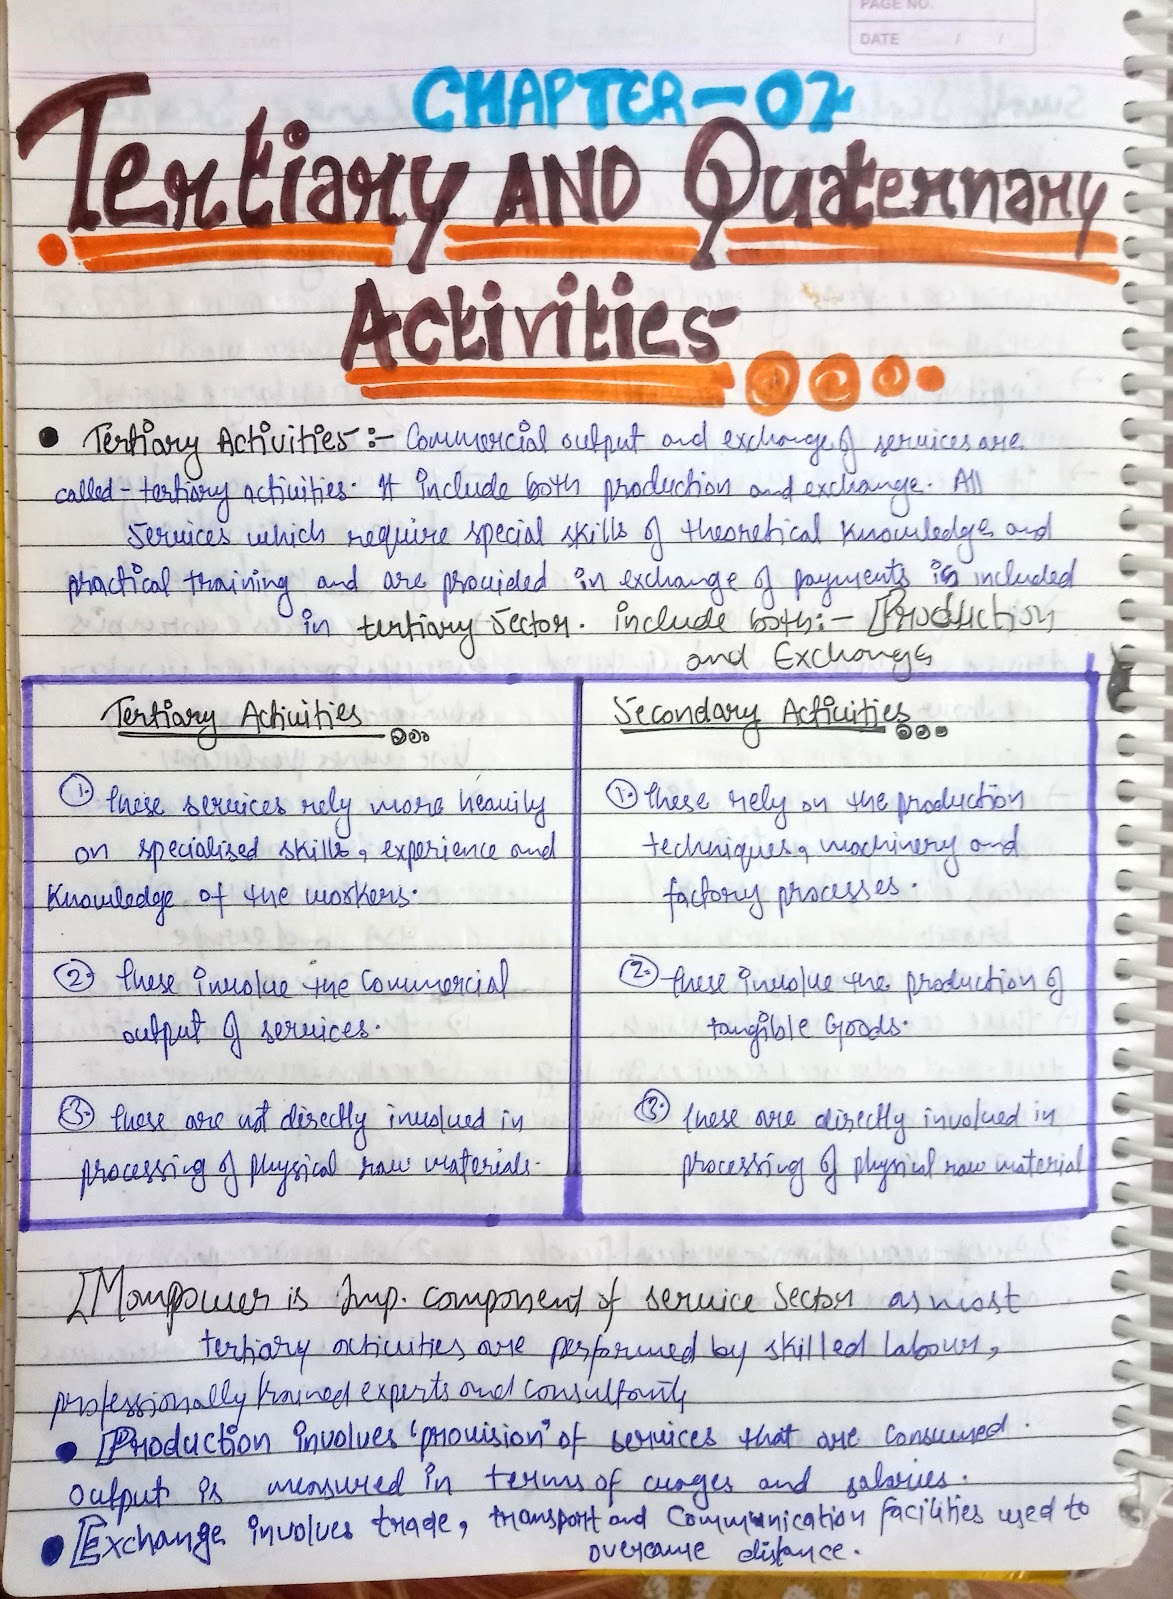 PAGE NO.
DATE / /
CHAPTER-07
Tertiary AND Quaternary
Activities
• Tertiary Activities:- Commercial output and exchange of services are
called-tertiary activities. It include both production and exchange. All
Services which require special skills of theoretical knowledge and
practical training and are provided in exchange of payments is included
in tertiary Sector. include both:- Production
and Exchange
Tertiary Activities
① these services rely more heavily
on specialised skills, experience and
knowledge of the workers.
② these involve the Commercial
output of services.
③ these are not directly involved in
processing of physical raw materials.
Secondary Activities
① these rely on the production
techniques, machinery and
factory processes.
② these involve the production of
tangible Goods.
③ these are directly involved in
processing of physical raw material
Manpower is Imp. component of service Sector as most
tertiary activities are performed by skilled labour,
professionally trained experts and consultants
• Production involves 'provision' of services that are consumed.
output is measured in terms of wages and salaries.
• Exchange involves trade, transport and Communication facilities used to
overcame distance.